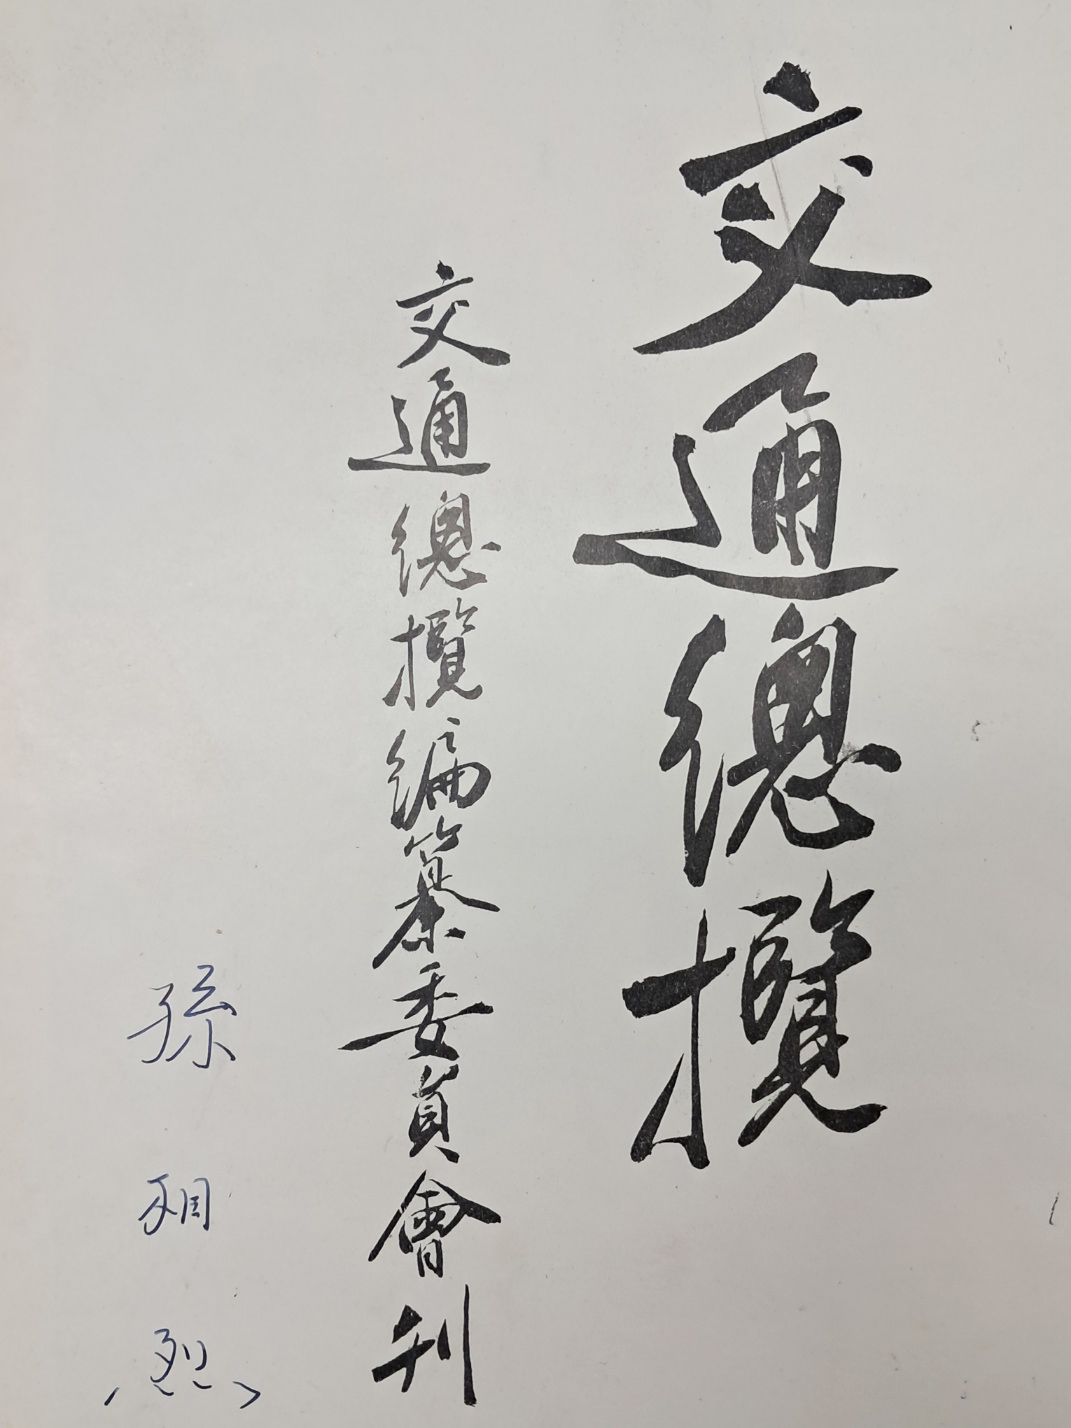 交通總攬
交通總攬編纂委員會刊
孫